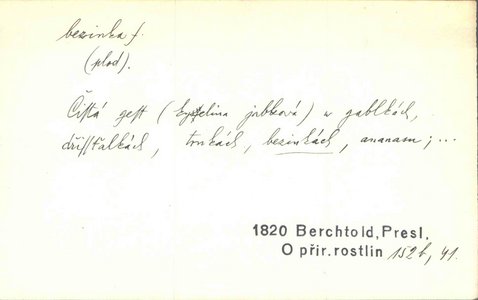 bezinka f.
(plod).
Čistá gest (kyselina jabková) w gablkách,
dřišťalkách, trnkách, bezinkách, ananasu; ...
1820 Berchtold, Presl,
O přir. rostlin 152b, 41.